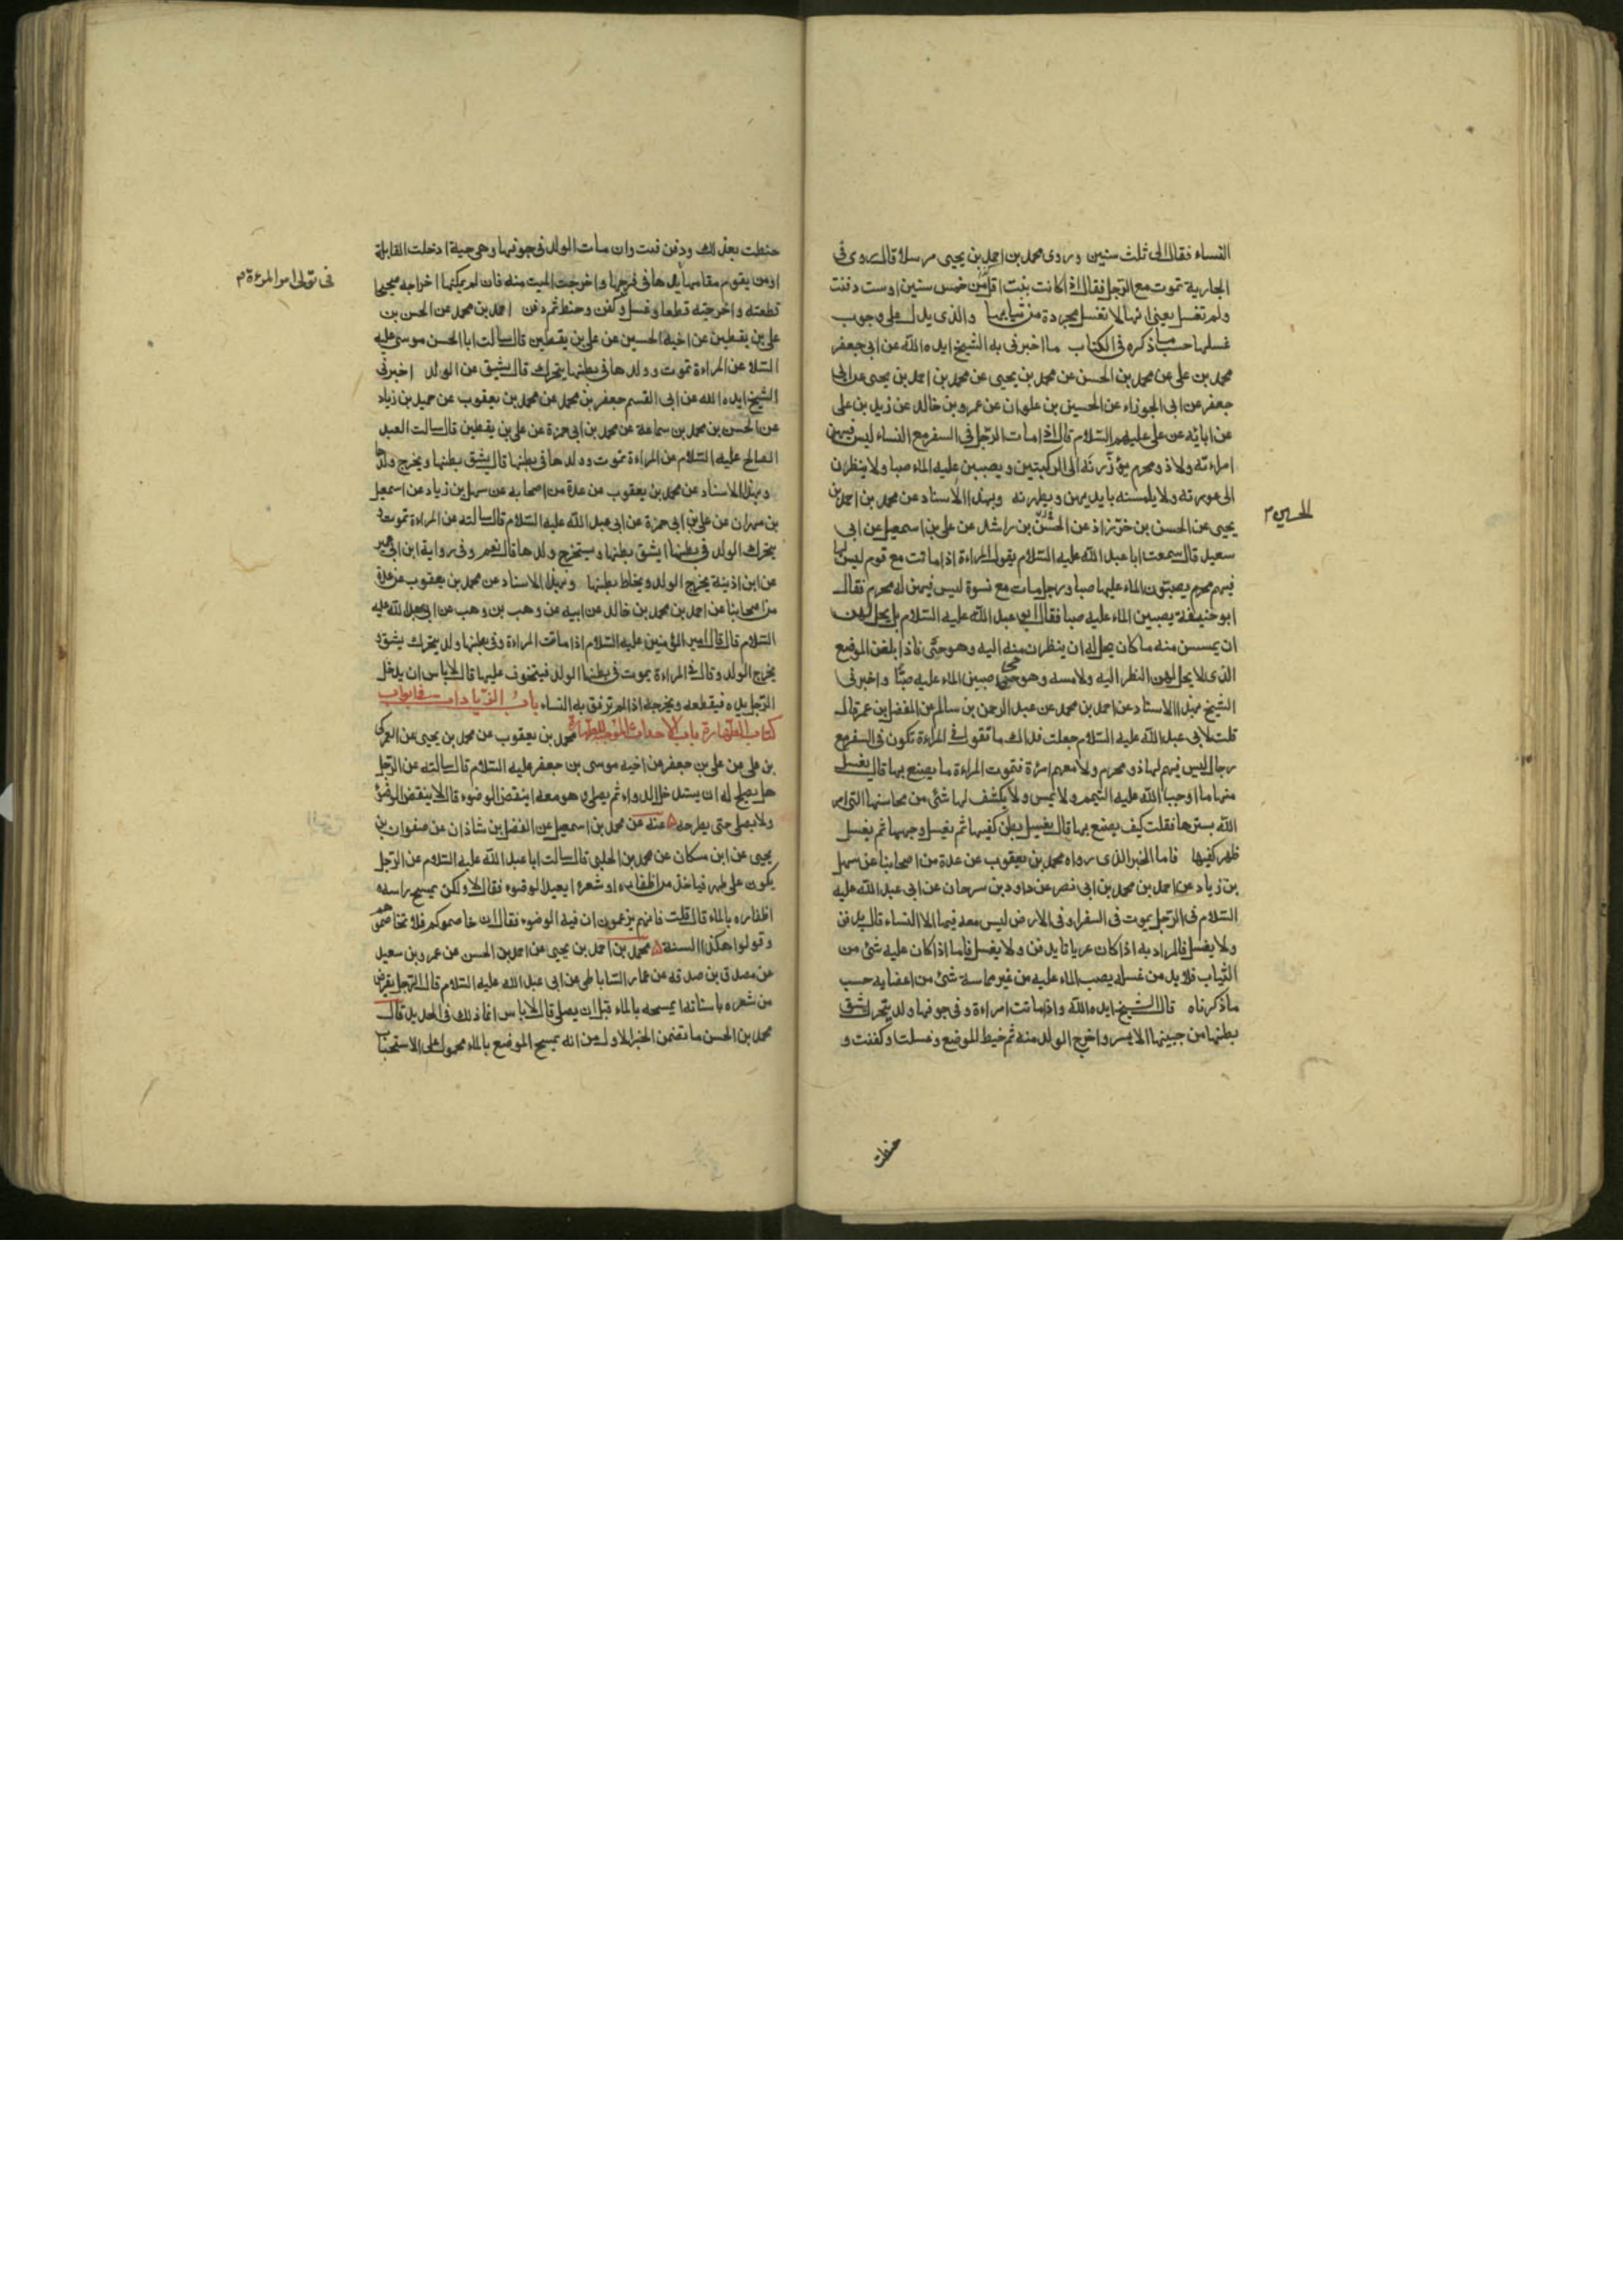 النساء فقال الى ثلث سنين وروى محمد بن احمد بن يحيى مرسلا قال روى فى
الجارية تموت مع الرجل فقال اذا كانت بنت اقل من خمس سنين اوست دفنت
ولم تغسل يعنى انها لا تغسل مجردة من ثيابها والذى يدل على وجوب
غسلها حسب ما ذكره فى الكتاب ما اخبرنى به الشيخ ايده الله عن ابى جعفر
محمد بن على عن محمد بن الحسن عن محمد بن يحيى عن محمد بن احمد بن يحيى عن ابى
جعفر عن ابى الجوزاء عن الحسين بن علوان عن عمرو بن خالد عن زيد بن على
عن ابائه عن على عليهم السلام قال اذا مات الرجل فى السفر مع النساء ليس فيهن
امراءته ولا ذو محرم يؤزرنه الى الركبتين ويصببن عليه الماء صبا ولا ينظرن
الى عورته ولا يلمسنه بايديهن ويطهرنه وبهذا الاسناد عن محمد بن احمد بن
الحسين
يحيى عن الحسن بن خرزاذ عن بن راشد عن على بن اسمعيل عن ابى
سعيد قال سمعت ابا عبد الله عليه السلام يقول المراءة اذا ماتت مع قوم ليس لها
فيهم محرم يصبون الماء عليها صبا ورجل مات مع نسوة ليس فيهن له محرم فقال
ابو حنيفة يصببن الماء عليه صبا فقال ابو عبد الله عليه السلام بل يحل لهن
ان يمسسن منه ما كان يحل له ان ينظرن منه اليه وهو حى فاذا بلغن الموضع
الذى لا يحل لهن النظر اليه ولا مسه وهو حى صببن الماء عليه صبا واخبرنى
الشيخ بهذا الاسناد عن احمد بن محمد عن عبد الرحمن بن سالم عن المفضل بن عمر قال
قلت لابى عبد الله عليه السلام جعلت فداك ما تقول فى المراءة تكون فى السفر مع
رجال ليس فيهم لها ذو محرم ولا معهم امرءة فتموت المراءة ما يصنع بها قال يغسل
منها ما اوجب الله عليه التيمم ولا تمس ولا يكشف لها شئ من محاسنها التى امر
الله بسترها فقلت كيف يصنع بها قال يغسل بطن كفيها ثم يغسل وجهها ثم يغسل
ظهر كفيها فاما الخبر الذى رواه محمد بن يعقوب عن عدة من اصحابنا عن سهل
بن زياد عن احمد بن محمد بن ابى نصر عن داود بن سرحان عن ابى عبد الله عليه
السلام فى الرجل يموت فى السفر او فى الارض ليس معه فيها الا النساء قال يدفن
ولا يغسل فالمراد به اذا كان عريانا يدفن ولا يغسل فاما اذا كان عليه شئ من
الثياب فلا بد من غسله يصب الماء عليه من غير مماسة شئ من اعضايه حسب
ما ذكرناه قال الشيخ ايده الله واذا ماتت امراءة وفى جوفها ولد يتحرك شق
بطنها من جنبها الايسر واخرج الولد منه ثم خيط الموضع وغسلت وكفنت و
حنطت
حنطت بعد ذلك ودفنت وان مات الولد فى جوفها وهى حية ادخلت القابلة
فى تولى امر المرءة
او من يقوم مقامها يدها فى فرجها واخرجت الميت منه فان لم يمكنها اخراجه صحيحا
قطعته واخرجته قطعا وغسل وكفن وحنط ثم دفن احمد بن محمد عن الحسن بن
على بن يقطين عن اخيه الحسين عن على بن يقطين قال سالت ابا الحسن موسى عليه
السلام عن المراءة تموت وولدها فى بطنها يتحرك قال يشق عن الولد اخبرنى
الشيخ ايده الله عن ابى القسم جعفر بن محمد عن محمد بن يعقوب عن حميد بن زياد
عن الحسن بن محمد بن سماعة عن محمد بن ابى حمزة عن على بن يقطين قال سالت العبد
الصالح عليه السلام عن المراءة تموت وولدها فى بطنها قال يشق بطنها ويخرج ولدها
وبهذا الاسناد عن محمد بن يعقوب عن عدة من اصحابه عن سهل بن زياد عن اسمعيل
بن مهران عن على بن ابى حمزة عن ابى عبد الله عليه السلام قال سالته عن المراءة تموت و
يتحرك الولد فى بطنها ايشق بطنها ويستخرج ولدها قال نعم وفى رواية ابن ابى عمير
عن ابن اذينة يخرج الولد ويخاط بطنها وبهذا الاسناد عن محمد بن يعقوب عن عدة
من اصحابنا عن احمد بن محمد بن خالد عن ابيه عن وهب بن وهب عن ابى عبد الله عليه
السلام قال قال امير المؤمنين عليه السلام اذا ماتت المراءة وفى بطنها ولد يتحرك يشق و
يخرج الولد وقال فى المراءة يموت فى بطنها الولد فيتخوف عليها قال لا باس ان يدخل
الرجل يده فيقطعه ويخرجه اذا لم ترفق به النساء باب الزيادات فى ابواب
كتاب الطهارة باب الاحداث الموجبة للطهارة محمد بن يعقوب عن محمد بن يحيى عن العمركى
بن على عن على بن جعفر عن اخيه موسى بن جعفر عليه السلام قال سالته عن الرجل
هل يصلح له ان يستدخل الدواء ثم يصلى وهو معه اينقض الوضوء قال لا ينقض الوضوء
ولا يصلى حتى يطرحه عنه عن محمد بن اسمعيل عن الفضل بن شاذان عن صفوان بن
يحيى عن ابن مسكان عن محمد بن الحلبى قال سالت ابا عبد الله عليه السلام عن الرجل
يكون على طهر فياخذ من اظفاره او شعره ايعيد الوضوء فقال لا ولكن يمسح راسه و
اظفاره بالماء قال قلت فانهم يزعمون ان فيه الوضوء فقال ان خاصموكم فلا تخاصموهم
وقولوا هكذا السنة محمد بن احمد بن يحيى عن احمد بن الحسن عن عمرو بن سعيد
عن مصدق بن صدقه عن عمار الساباطى عن ابى عبد الله عليه السلام قال الرجل يقرض
من شعره باسنانه ايمسحه بالماء قبل ان يصلى قال لا باس انما ذلك فى الحديد قال
محمد بن الحسن ما تضمن الخبر الاول من انه يمسح الموضع بالماء محمول على الاستحباب